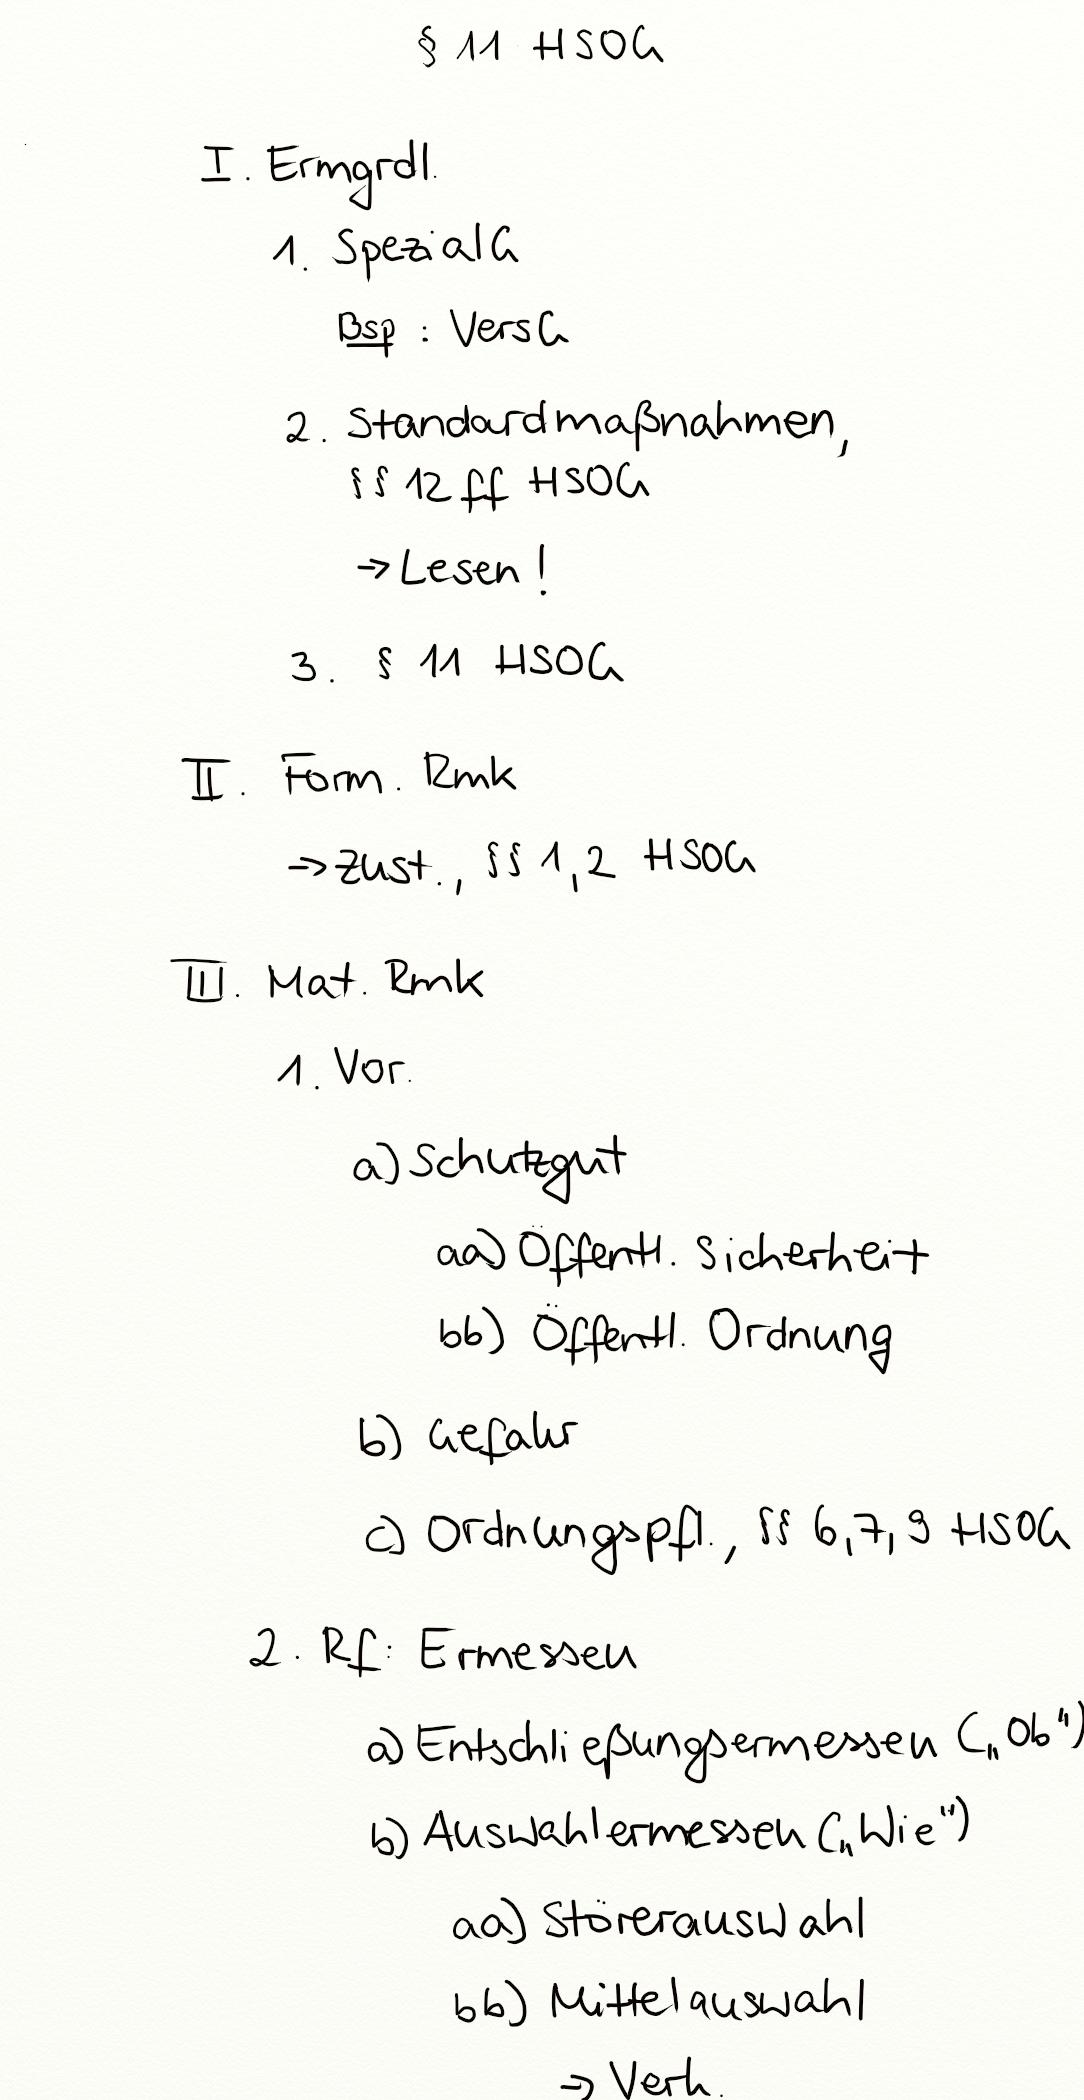 § 11 HSOG
I. Ermgrdl.
1. SpezialG
Bsp : VersG
2. Standardmaßnahmen,
§§ 12 ff HSOG
→ Lesen!
3. § 11 HSOG
II. Form. Rmk
→ Zust., §§ 1,2 HSOG
III. Mat. Rmk
1. Vor.
a) Schutzgut
aa) Öffentl. Sicherheit
bb) Öffentl. Ordnung
b) Gefahr
c) Ordnungspfl., §§ 6,7,9 HSOG
2. Rf: Ermessen
a) Entschließungsermessen („Ob“)
b) Auswahlermessen („Wie“)
aa) Störerauswahl
bb) Mittelauswahl
→ Verh.